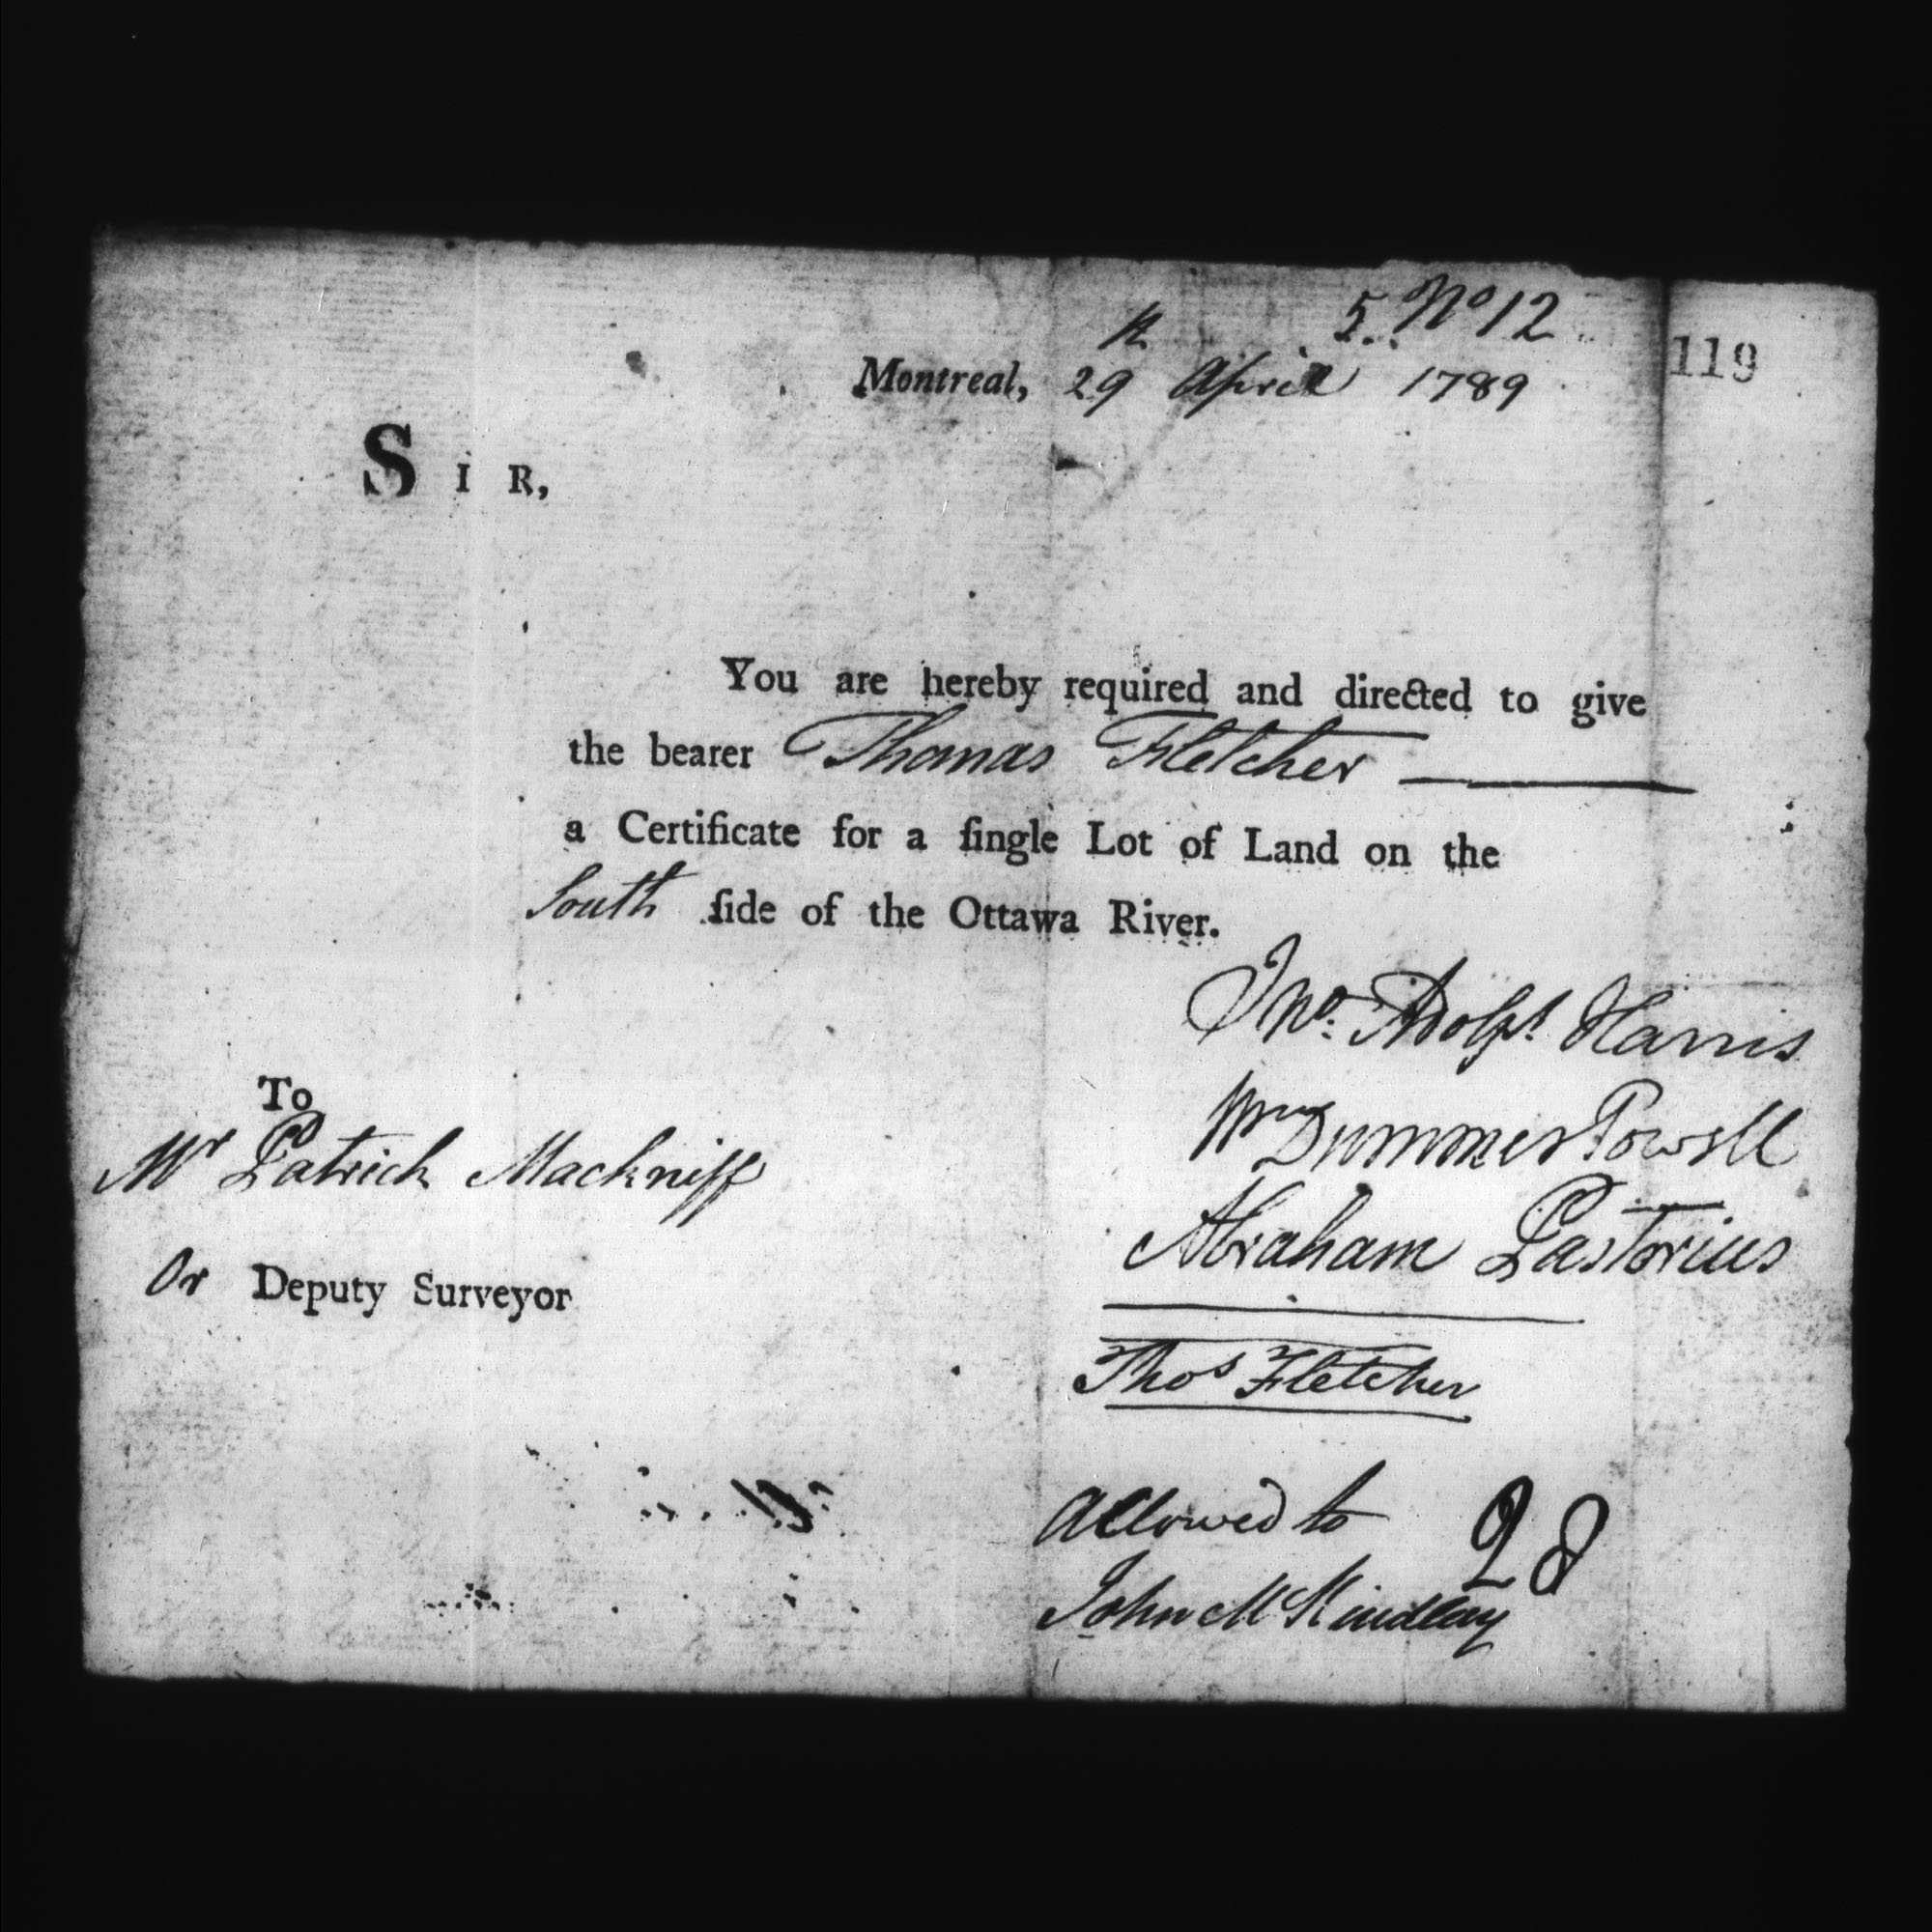 5. No 12
119
Montreal, 29 April 1789
SIR,
You are hereby required and directed to give
the bearer Thomas Fletcher
a Certificate for a ſingle Lot of Land on the
South ſide of the Ottawa River.
Jno. Adolps. Harris
Wm Dummer Powell
Abraham Pastorius
To
Mr Patrick Mackniff
Or Deputy Surveyor
Thos Fletcher
Allowed to 28
John McKindlay